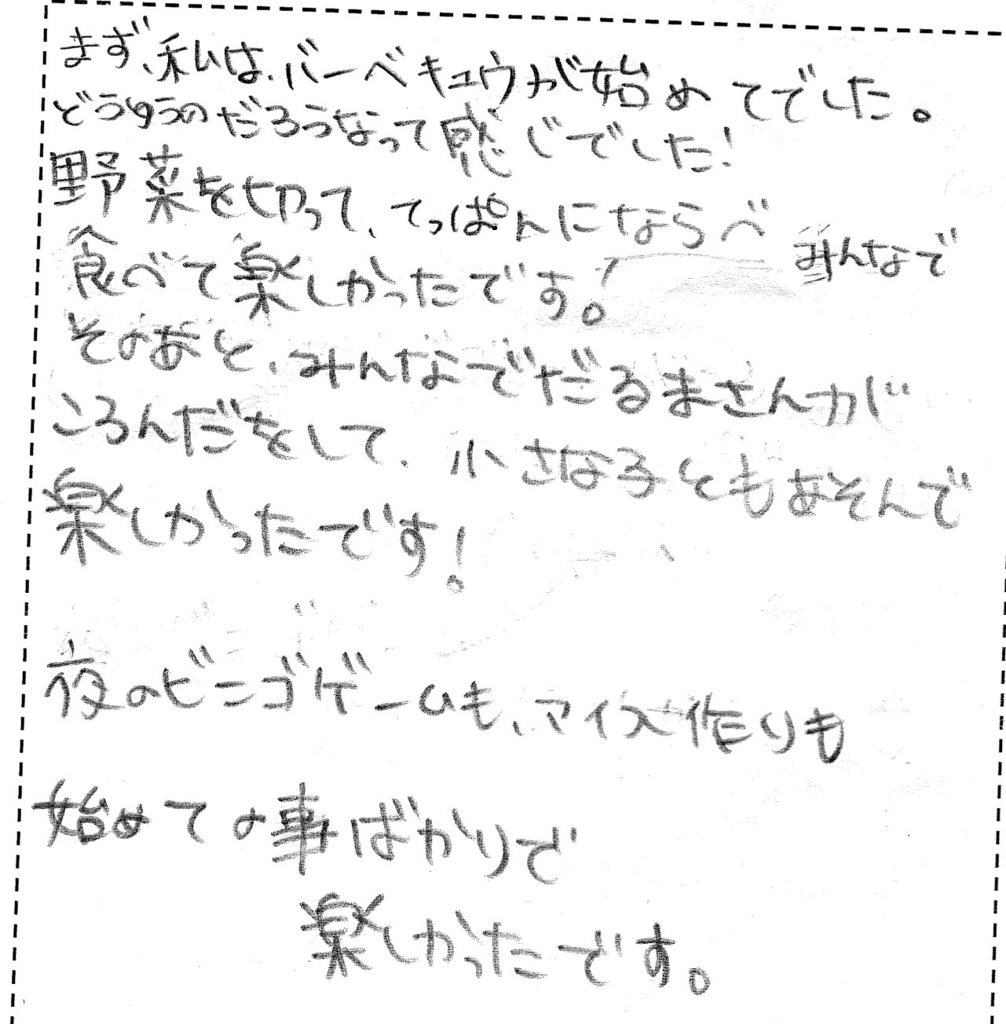 まず、私は、バーベキュウが始めてでした。
どうゆうのだろうなって感じでした!
野菜を切って、てっぱんにならべ みんなで
食べて楽しかったです!
そのあと、みんなでだるまさんが
ころんだをして、小さな子ともあそんで
楽しかったです!
夜のビンゴゲームも、アイス作りも
始めての事ばかりで
楽しかったです。